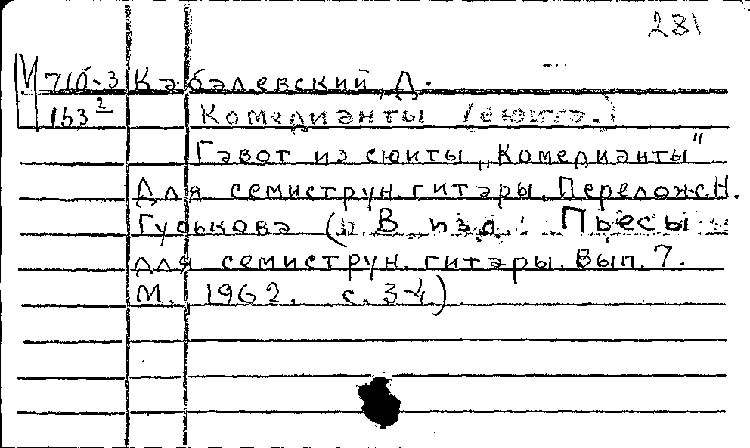 281
М 710-3 Кабалевский, Д.
163² Комедианты (сюита.)
Гавот из сюиты „Комедианты"
Для семиструн. гитары. Перелож. Н.
Гуськова (В изд.: Пьесы
для семиструн. гитары. Вып. 7.
М. 1962. с. 3-4)